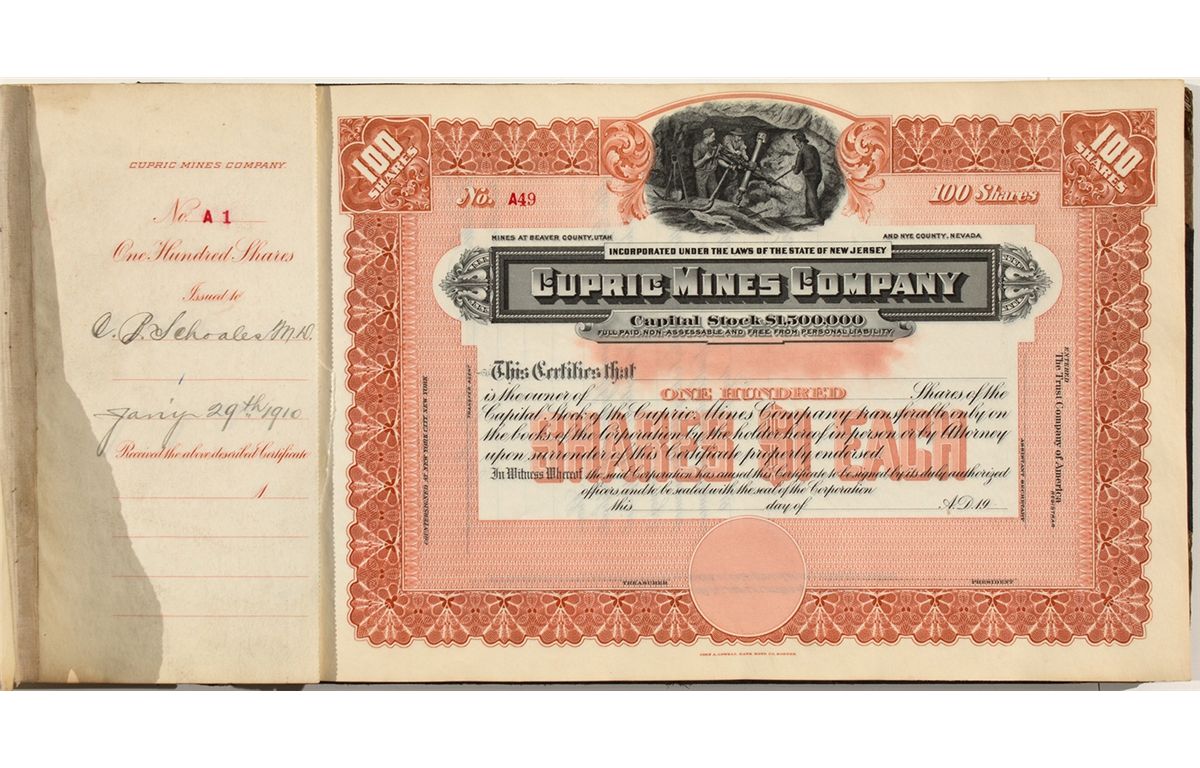 CUPRIC MINES COMPANY.
No. A 1
One Hundred Shares
Issued to
C. P. Schoales M.D.
Jan'y 29th 1910
Received the above described Certificate
1
100 SHARES
100 SHARES
No. A49
100 Shares
MINES AT BEAVER COUNTY, UTAH
AND NYE COUNTY, NEVADA.
INCORPORATED UNDER THE LAWS OF THE STATE OF NEW JERSEY
CUPRIC MINES COMPANY
Capital Stock $1,500,000
FULL PAID, NON-ASSESSABLE AND FREE FROM PERSONAL LIABILITY.
This Certifies that
is the owner of ONE HUNDRED Shares of the
Capital Stock of the Cupric Mines Company transferable only on
the books of the Corporation by the holder hereof in person or by Attorney
upon surrender of this Certificate properly endorsed.
SHARES $1 EACH
In Witness Whereof, the said Corporation has caused this Certificate to be signed by its duly authorized
officers and to be sealed with the seal of the Corporation
this day of A.D. 19
COUNTERSIGNED AT NEW YORK CITY, NEW YORK
TRANSFER AGENT
ENTERED
The Trust Company of America
REGISTRAR
ASSISTANT SECRETARY
TREASURER
PRESIDENT
JOHN A. LOWELL BANK NOTE CO. BOSTON.